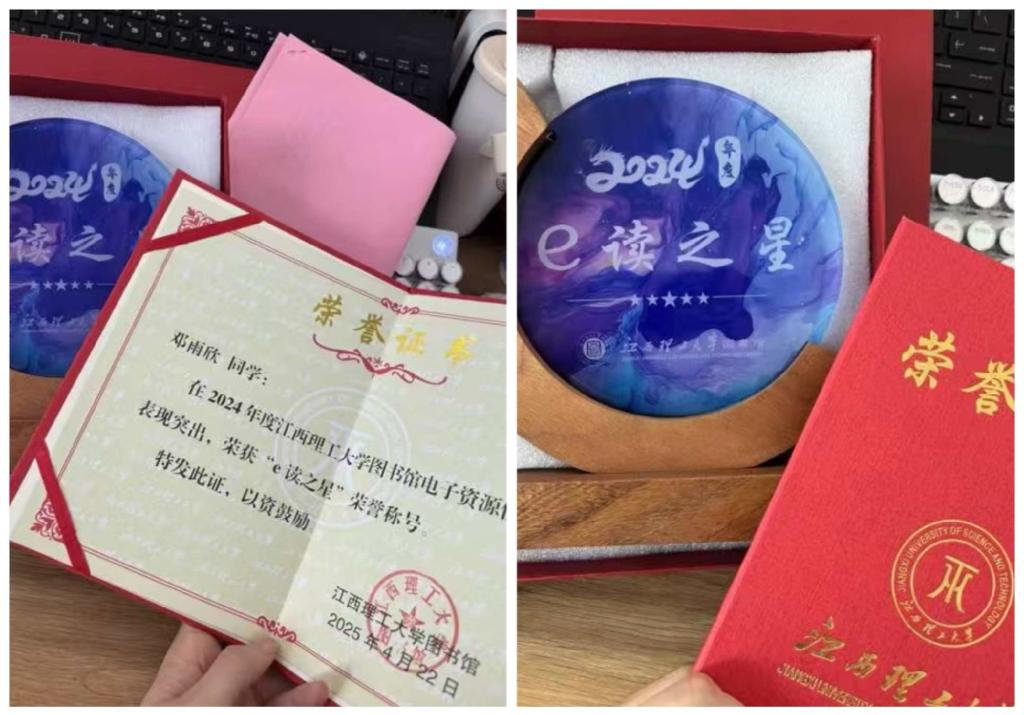 2024 年度
读之
★★★★★
江西理工大
荣誉证书
邓雨欣 同学：
在2024年度江西理工大学图书馆电子资源
表现突出，荣获“e读之星”荣誉称号。
特发此证，以资鼓励
江西理工大学图书馆
2025年4月22日
2024 年度
e 读之星
★★★★★
江西理工大学图书馆
荣誉
JIANGXI UNIVERSITY OF SCIENCE AND TECHNOLOGY
江西理工大学
江西理工大
JIANGXI UNIVERSITY